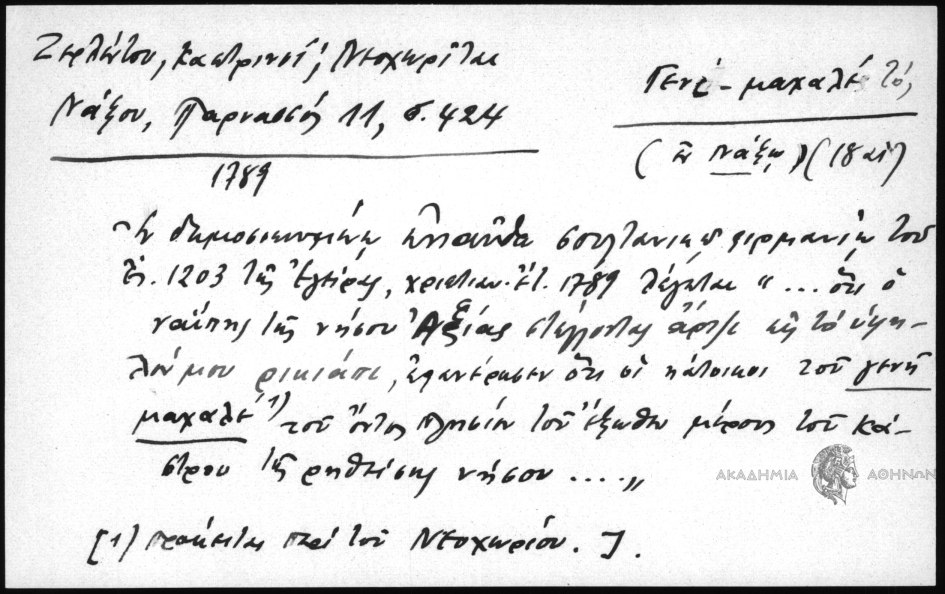 Ζερλέντου, Καστρινοί, Νεοχωρῖται
Νάξου, Παρνασσός 11, σ. 424
Γενὶ - μαχαλέ τό,
(ἐν Νάξῳ) (18 αἰ)
1789
Ἐν δημοσιευομένῃ ἐνταῦθα σουλτανικῷ φιρμανίῳ τοῦ
ἔτ. 1203 τῆς Ἐγίρας, χριστιαν. ἔτ. 1789 λέγεται „ ... ὅτι ὁ
ναΐπης τῆς νήσου Ἀξίας στέλλοντας ἄρτζι εἰς τὸ ὑψη-
λόν μου ρικιάπι, ἐφανέρωσεν ὅτι οἱ κάτοικοι τοῦ γενῆ
μαχαλέ 1) τοῦ ὄντος πλησίον τοῦ ἔξωθεν μέρους τοῦ κά-
στρου τῆς ρηθείσης νήσου .... „
ΑΚΑΔΗΜΙΑ ΑΘΗΝΩΝ
[1) πρόκειται περὶ τοῦ Νεοχωρίου. ].